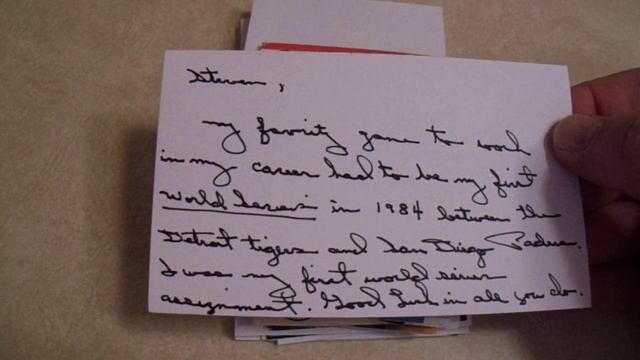 Steven,
my favority game to work
in my career had to be my first
World Series in 1984 between the
Detroit tigers and San Diego Padres.
I was my first world series
assignment. Good Luck in all you do.